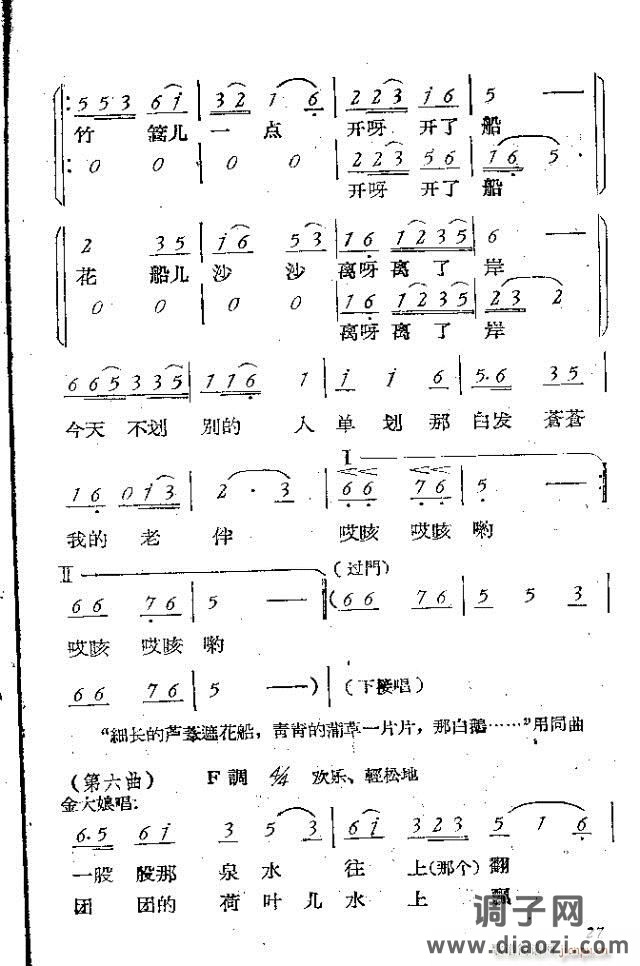 5 5 3 6 i | 3 2 1 6 | 2 2 3 i 6 | 5 —
竹 篙儿 一 点 开呀 开了 船
0 0 | 0 0 | 2 2 3 5 6 | 1 6 5
开呀 开了 船
2 3 5 | i 6 5 3 | 1 6 1 2 3 5 | 6 —
花 船儿 沙 沙 离呀 离 了 岸
0 0 | 0 0 | 1 6 1 2 3 5 | 2 3 2
离呀 离 了 岸
6 6 5 3 3 5 | 1 1 6 1 | i i 6 | 5·6 3 5
今天 不划 别的 人 单 划 那 白发 蒼蒼
I
1 6 0 i 3 | 2 · 3 | 6 6 7 6 | 5 —
我的 老 伴 哎咳 哎咳 喲
II (过門)
6 6 7 6 | 5 — (6 6 7 6 | 5 5 3
哎咳 哎咳 喲
6 6 7 6 | 5 —) | (下接唱)
“細长的芦葦遮花船，靑靑的蒲草一片片，那白鵝……”用同曲
(第六曲) F調 4/4 欢乐、輕松地
金大娘唱：
6·5 6 i 3 5 3 | 6 i 3 2 3 5 1 6
一股 股那 泉 水 往 上(那个) 翻
团 团的 荷 叶 儿 水 上 飄
27
调子网
www.diaozi.com